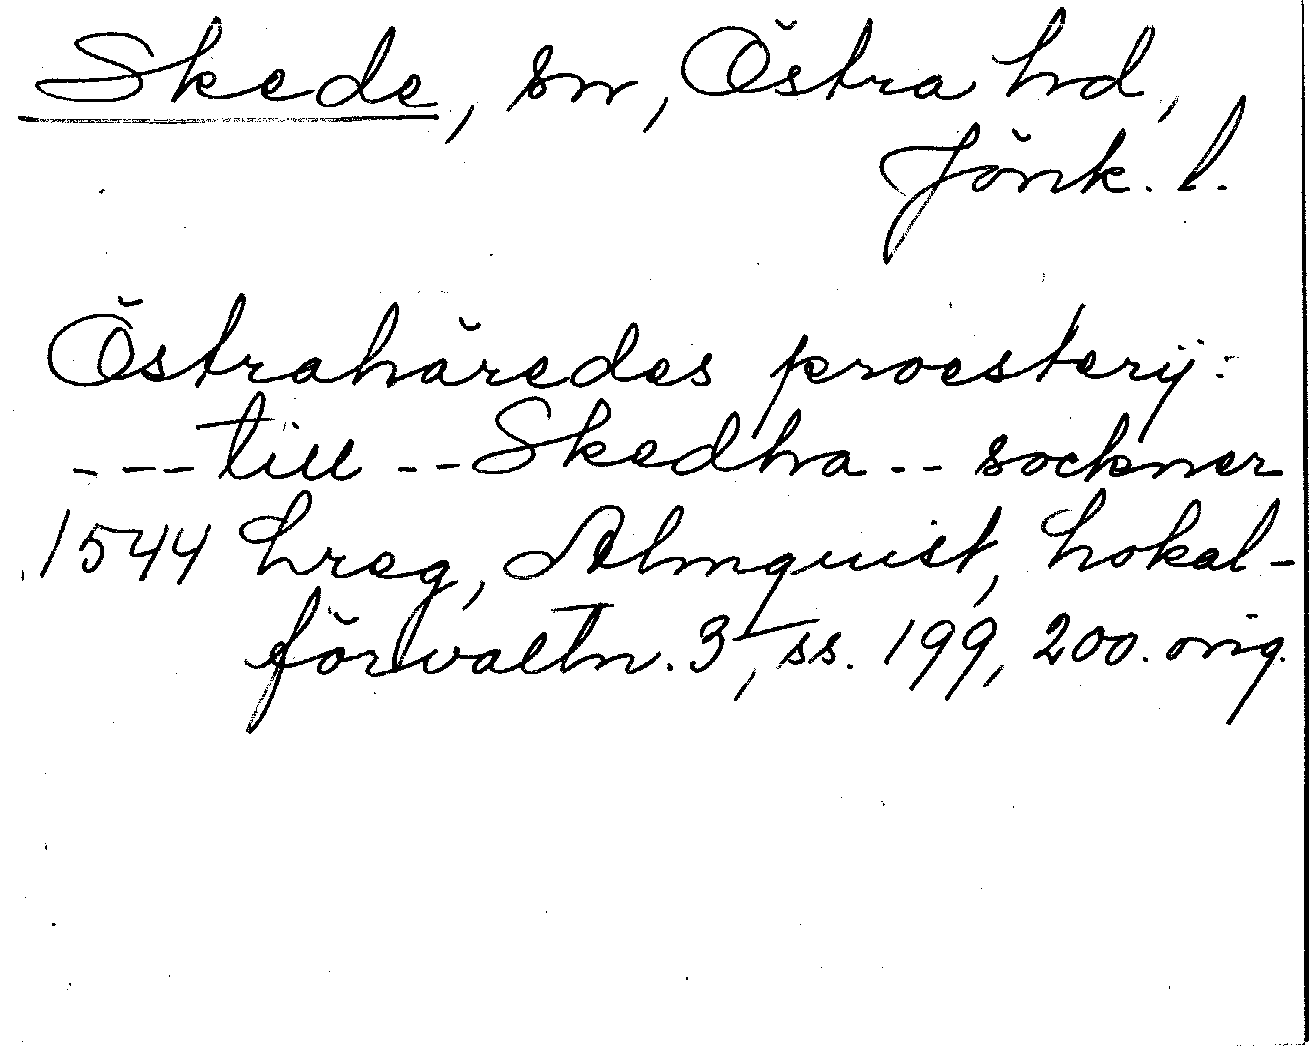 Skede, sn, Östra hd,
Jönk. l.
Östrahäredes proesterij:
--- till -- Skedha -- sockner
1544 Lreg, Almquist, Lokal-
förvaltn. 3, ss. 199, 200. orig.